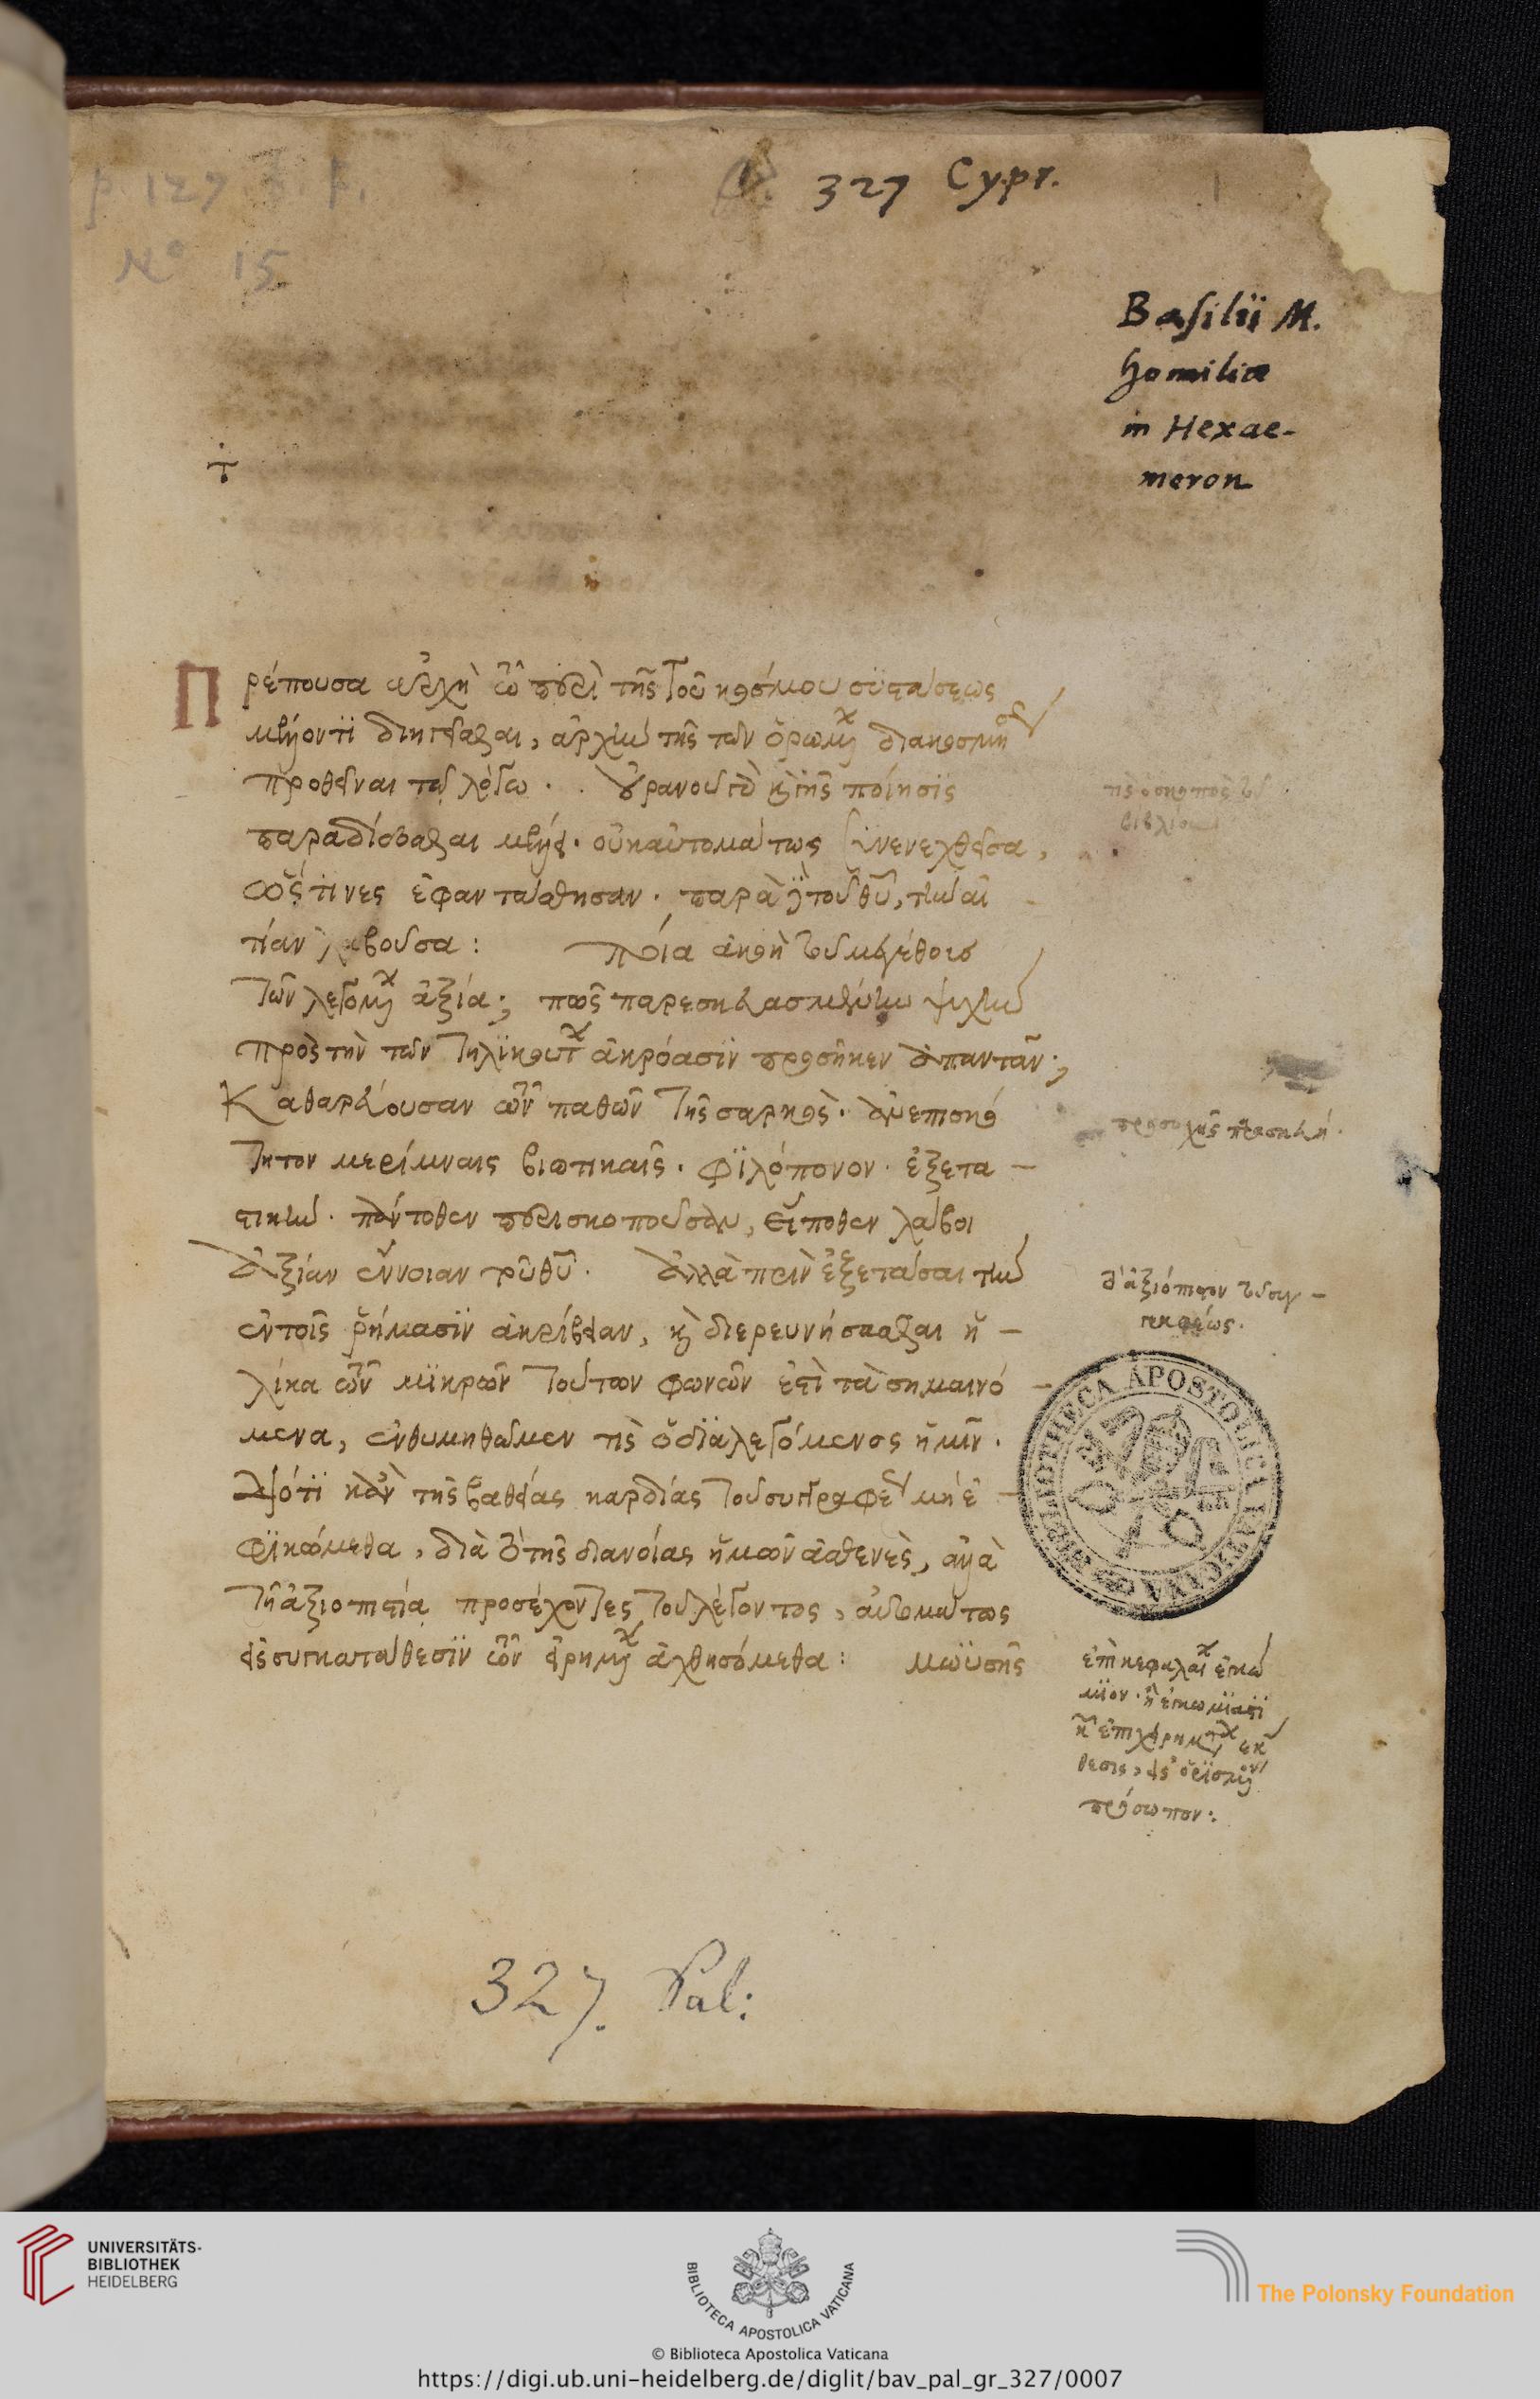 p. 127
327 Cypr.
1
N° 15
Basilii M.
homiliæ
in Hexae-
meron
Πρέπουσα ἀρχὴ τῶ περὶ τῆς τοῦ κόσμου συστάσεως
μέλλοντι διηγεῖσθαι, ἀρχὴν τῆς τῶν ὁρωμένων διακοσμήσεως
προθεῖναι τῶ λόγω. οὐρανοῦ γὰρ καὶ γῆς ποίησις
παραδίδοσθαι μέλλει. οὐκ αὐτομάτως συνενεχθεῖσα,
ὥς τινες ἐφαντάσθησαν. παρὰ δὲ τοῦ θῦ, τὴν αἰ
τίαν λαβοῦσα: Ποία ἀκοὴ τοῦ μεγέθους
τῶν λεγομένων ἀξία; πῶς παρεσκευασμένην ψυχὴν
πρὸς τὴν τῶν τηλικούτων ἀκρόασιν προσῆκεν ἀπαντᾶν;
Καθαρεύουσαν τῶν παθῶν τῆς σαρκὸς. ἀνεπισκό
τητον μερίμναις βιωτικαῖς. φιλόπονον. ἐξετα-
στικὴν. πάντοθεν περισκοποῦσαν, εἴ ποθεν λάβοι
ἀξίαν ἔννοιαν τοῦ θῦ. Ἀλλὰ πρὶν ἐξετάσαι τὴν
ἐν τοῖς ῥήμασιν ἀκρίβειαν, καὶ διερευνήσασθαι ἡ-
λίκα τῶν μικρῶν τούτων φωνῶν ἐστὶ τὰ σημαινό-
μενα, ἐνθυμηθῶμεν τίς ὁ διαλεγόμενος ἡμῖν.
Διότι κἂν τῆς βαθείας καρδίας τοῦ συγγραφέως μὴ ἐ-
φικώμεθα, διὰ τὸ τῆς διανοίας ἡμῶν ἀσθενὲς, ἀλλὰ
τῆ ἀξιοπιστία προσέχοντες τοῦ λέγοντος, αὐτομάτως
εἰς συγκατάθεσιν τῶν εἰρημένων ἀχθησόμεθα: μωϋσῆς
τίς ὁ σκοπὸς τοῦ
βιβλίου
προσοχῆς παρασκευή.
τὸ ἀξιόπιστον τοῦ συγ-
γραφέως.
ἐπὶ κεφαλαίων ἐγκώ
μιον.
πρόσωπον:
BIBLIOTHECA APOSTOLICA VATICANA
327. Pal:
UNIVERSITÄTS-
BIBLIOTHEK
HEIDELBERG
BIBLIOTECA APOSTOLICA VATICANA
The Polonsky Foundation
© Biblioteca Apostolica Vaticana
https://digi.ub.uni-heidelberg.de/diglit/bav_pal_gr_327/0007